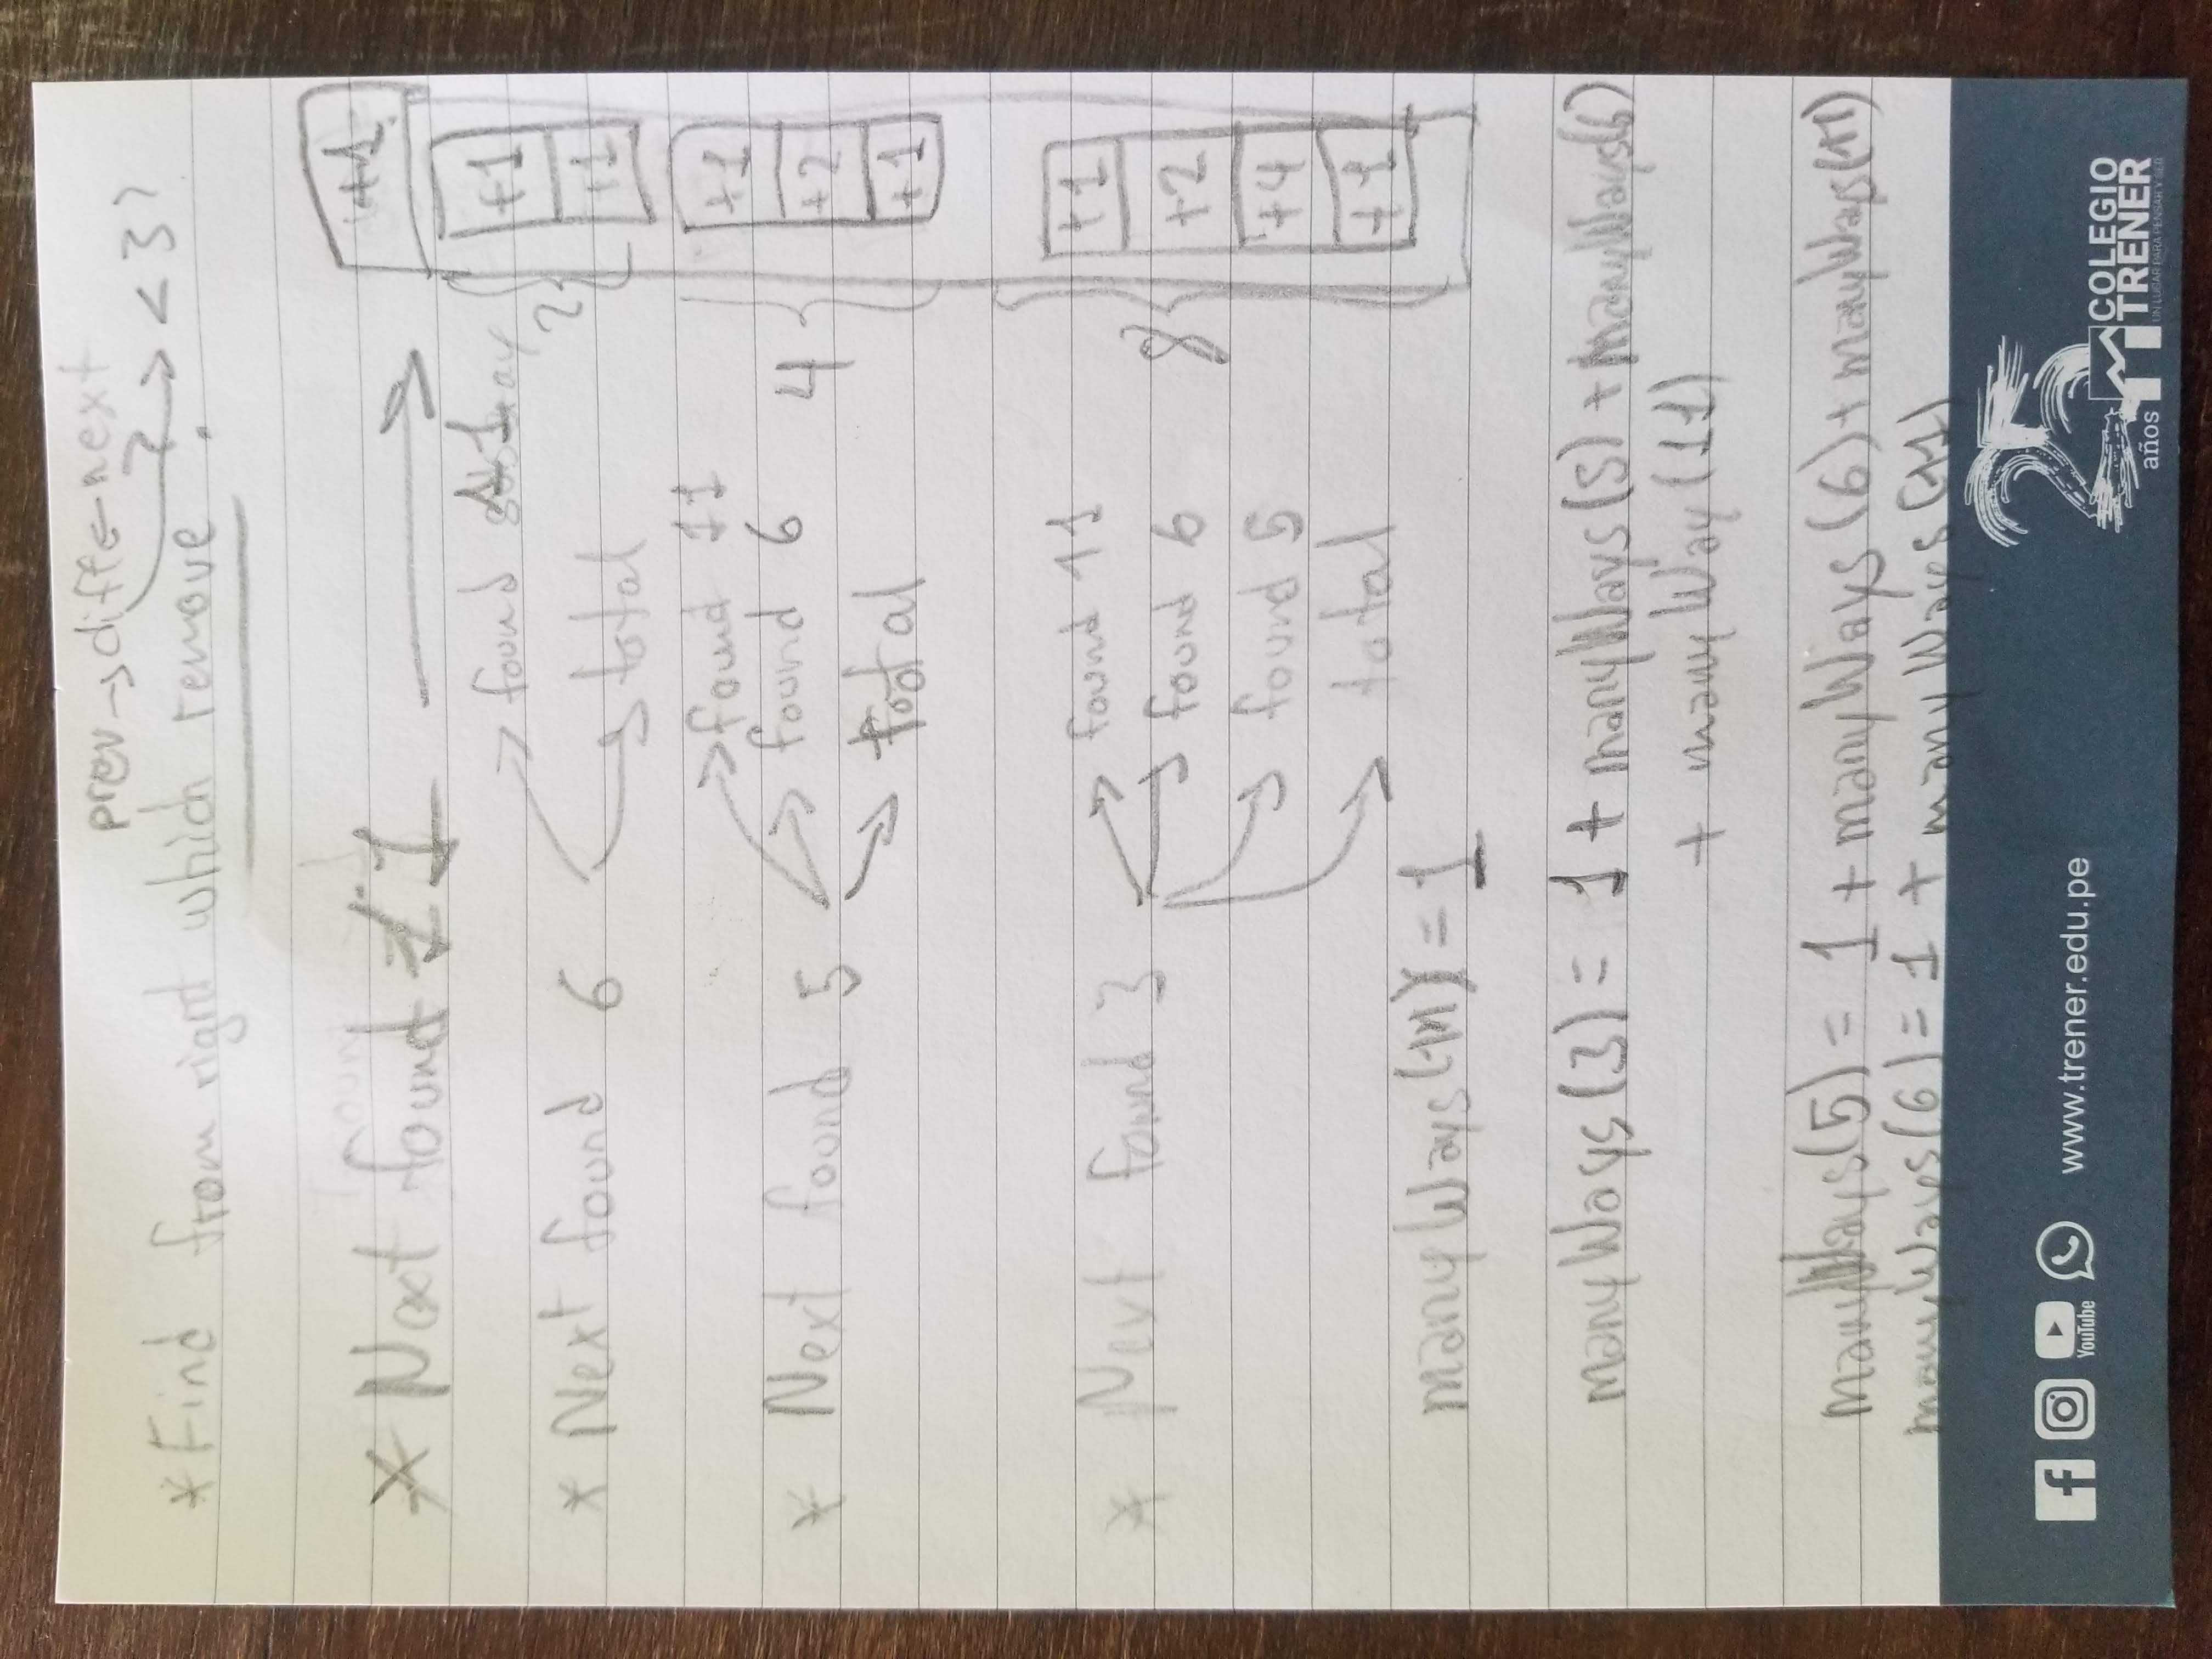 prev → diff ← next
→ < 3?
* Find from right which remove ?
* Next found 11 →
+1
* Next found 6
→ found 11
→ total
2
+1
+1
* Next found 5
→ found 11
→ found 6
→ total
4
+1
+2
+1
* Next found 3
→ found 11
→ found 6
→ found 5
→ total
8
+1
+2
+4
+1
manyWays(11) = 1
manyWays(3) = 1 + manyWays(5) + manyWays(6)
+ manyWay(11)
manyWays(5) = 1 + manyWays(6) + manyWays(11)
manyWays(6) = 1 + manyWays(11)
YouTube
www.trener.edu.pe
25
años
COLEGIO
TRENER
UN LUGAR PARA PENSAR Y SER